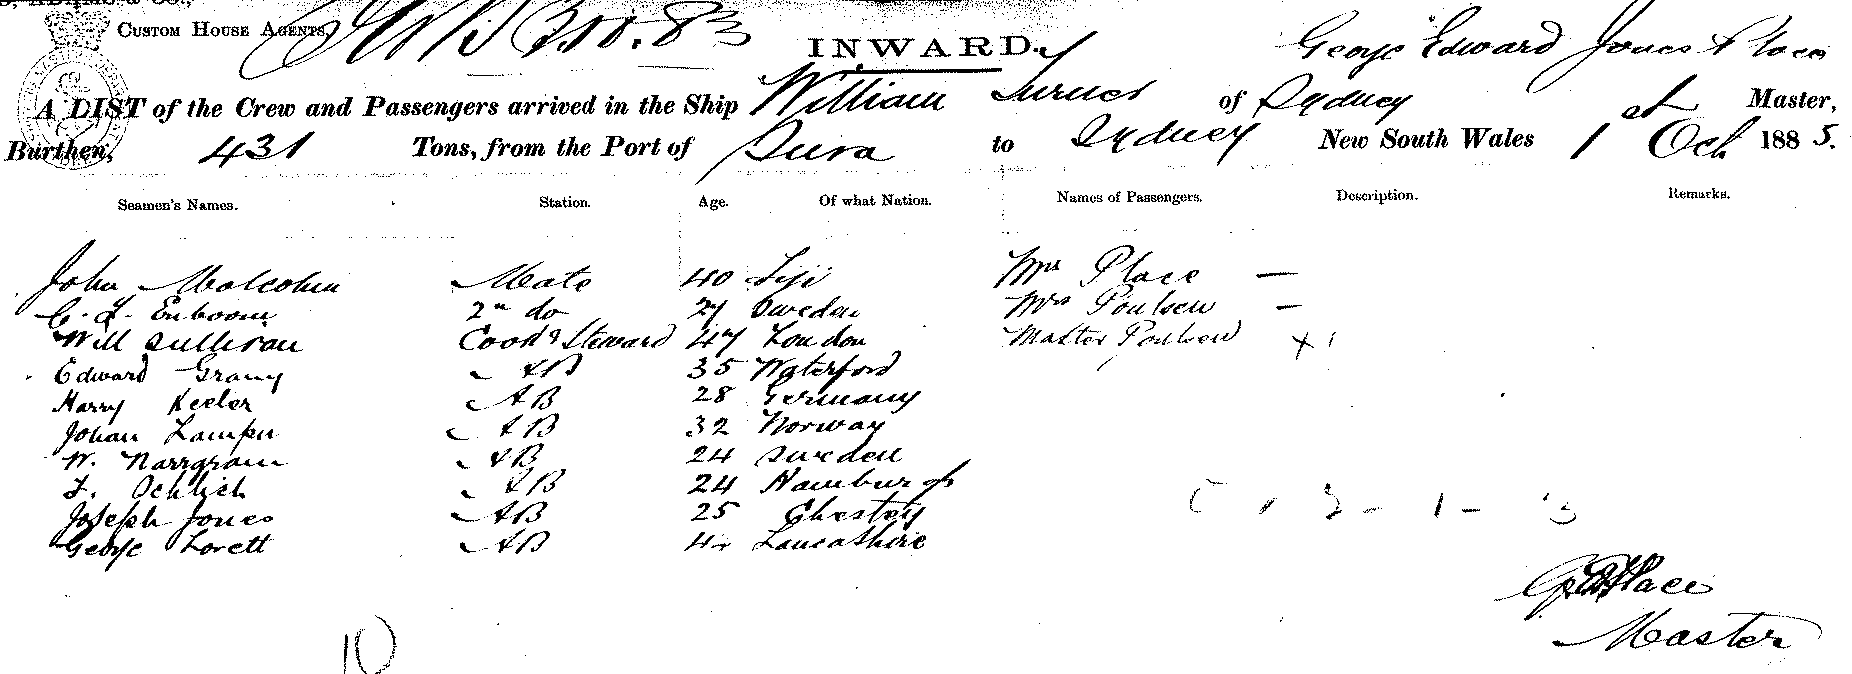 CUSTOM HOUSE AGENTS,
INWARD.
George Edward Jones Place
A LIST of the Crew and Passengers arrived in the Ship William Turner of Sydney Master,
Burthen, 431 Tons, from the Port of Suva to Sydney New South Wales 1st Oct 1885.
Seamen's Names. Station. Age. Of what Nation. Names of Passengers. Description. Remarks.
John Malcolm Mate 40 Fiji Mrs Place —
2n do 27 Sweden Mrs Poulsen —
Will Sullivan Cook & Steward 47 London Master Poulsen
Edward AB 35 Waterford
Harry Keeler AB 28 Germany
Johan AB 32 Norway
W. AB 24 Sweden
AB 24 Hamburg
Joseph Jones AB 25
George Lovett AB Lancashire
Place
Master
10